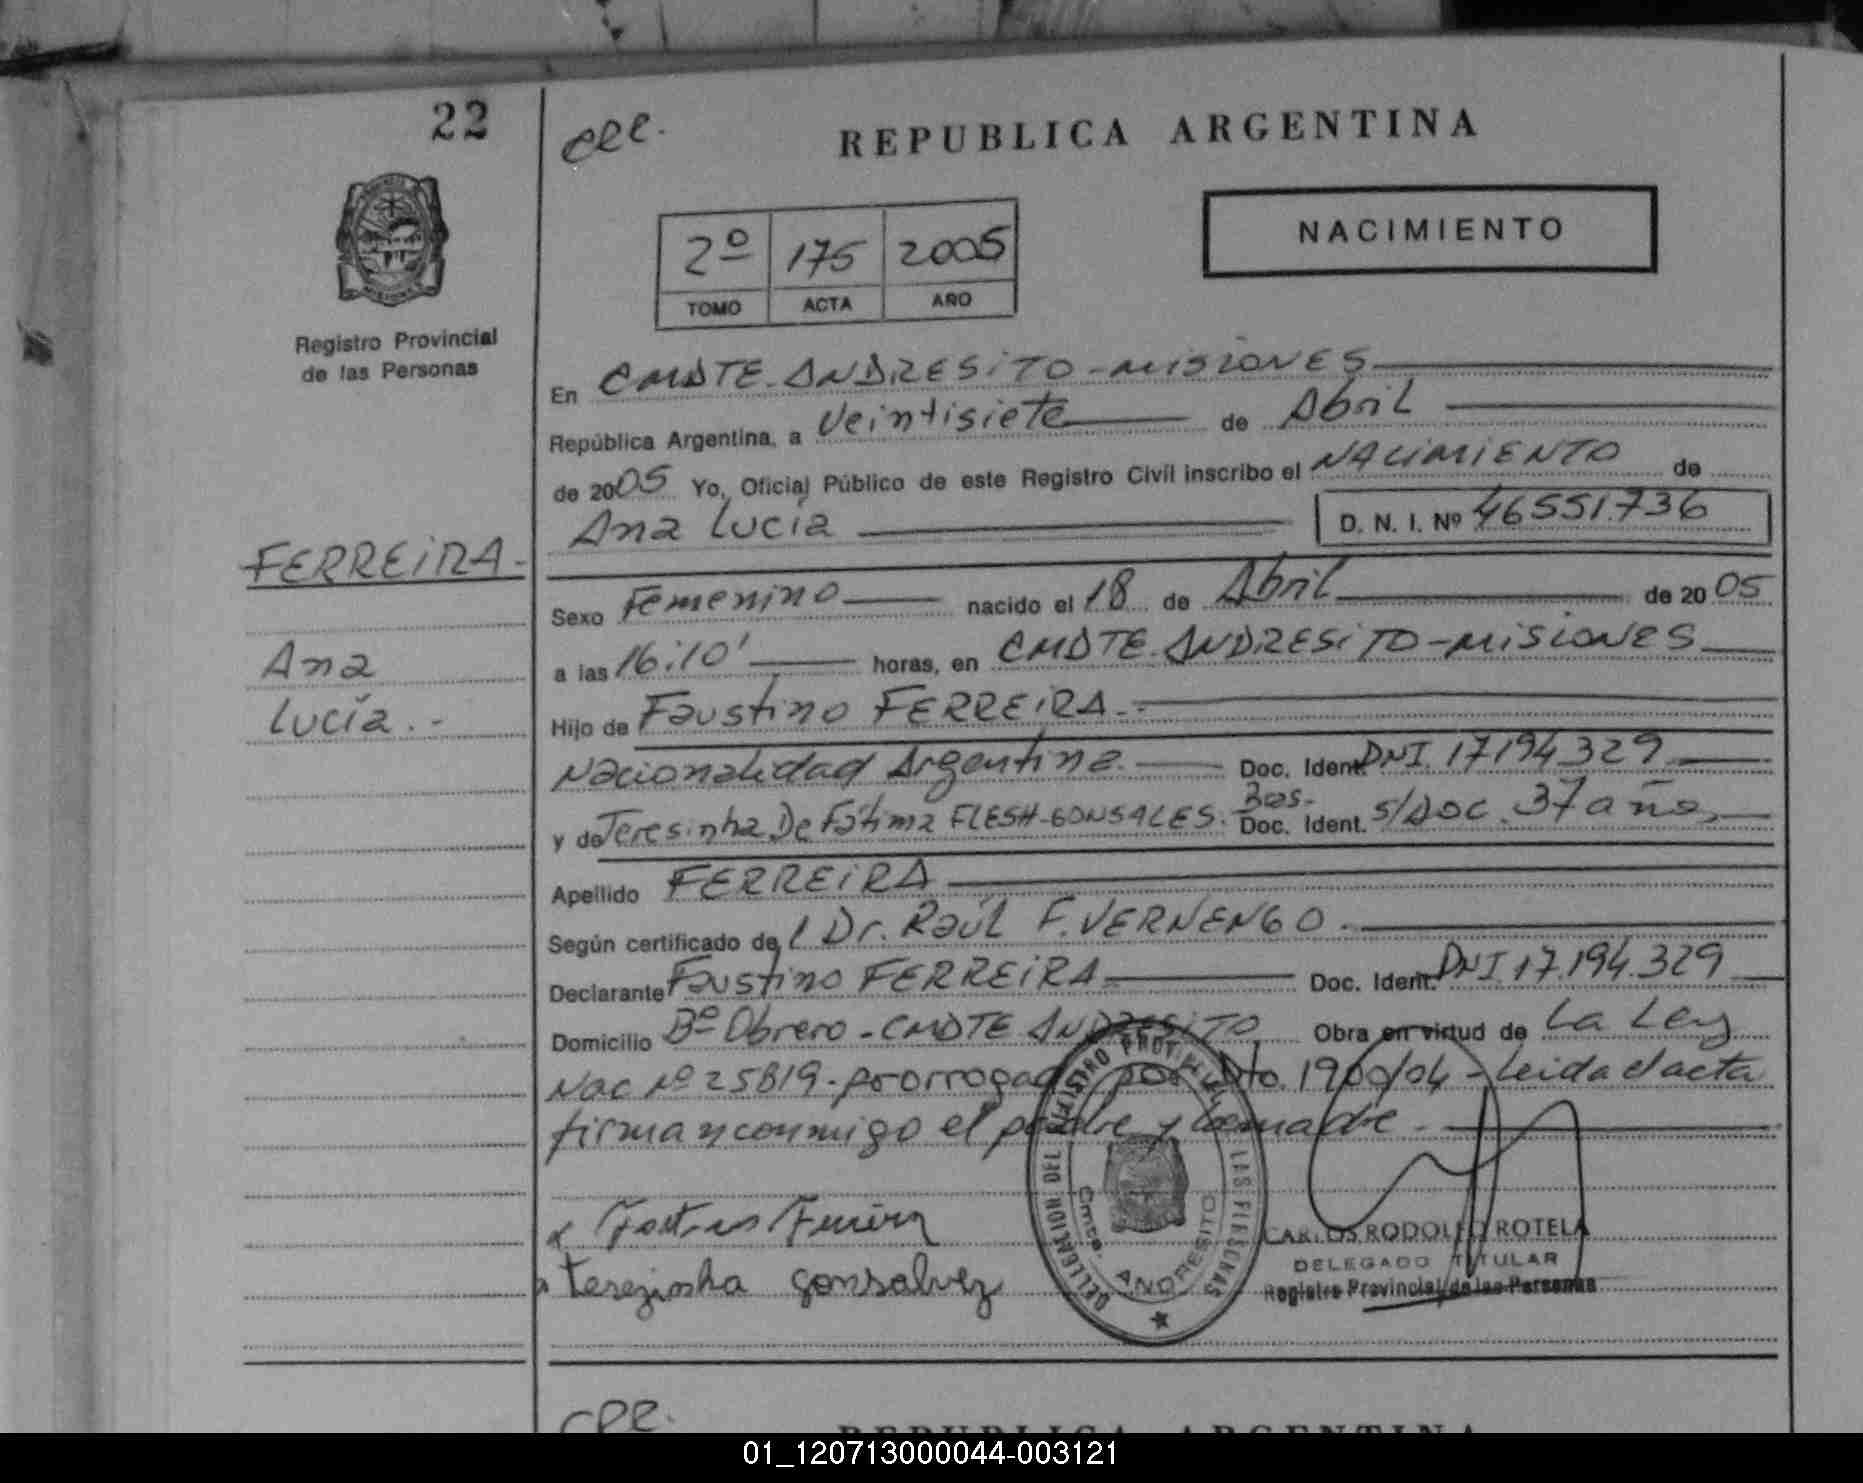 22
cpe.
REPUBLICA ARGENTINA
2º 175 2005
TOMO ACTA AÑO
NACIMIENTO
Registro Provincial
de las Personas
En CMDTE. ANDRESITO - MISIONES
República Argentina, a Veintisiete de Abril
de 2005 Yo, Oficial Público de este Registro Civil inscribo el NACIMIENTO de
Ana Lucía D. N. I. Nº 46551.736
FERREIRA.-
Ana
Lucía.-
Sexo Femenino nacido el 18 de Abril de 2005
a las 16:10' horas, en CMDTE. ANDRESITO - MISIONES
Hijo de Faustino FERREIRA.-
Nacionalidad Argentina. Doc. Ident. DNI. 17.194.329
y de Teresinha De Fátima FLESH-GONSALES. Bras. Doc. Ident. s/Doc. 37 años
Apellido FERREIRA
Según certificado del Dr. Raúl F. VERNENGO.
Declarante Faustino FERREIRA Doc. Ident. DNI. 17.194.329
Domicilio Bº Obrero - CMDTE. ANDRESITO Obra en virtud de La Ley
Nac Nº 25819 - prorrogada por Dto. 1900/04 - Leida el acta
firman conmigo el padre y la madre.
terezinha gonsalvez
DELEGACION DEL REGISTRO PROVINCIAL DE LAS PERSONAS
Cmte. ANDRESITO
CARLOS RODOLFO ROTELA
DELEGADO TITULAR
Registro Provincial de las Personas
cpe.
REPUBLICA ARGENTINA
01_120713000044-003121